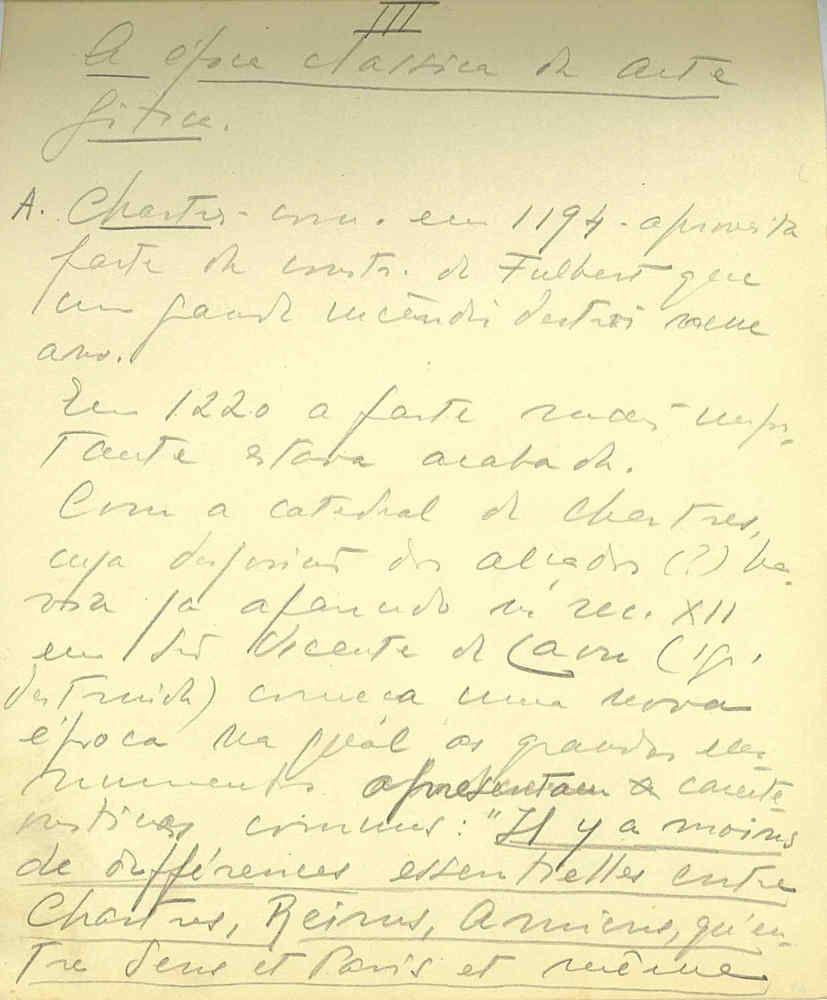 III
A época classica da arte
gótica.
A. Chartres - com. em 1194 - aproveita
parte da constr. de Fulbert que
um grande incêndio destroi nesse
ano.
Em 1220 a parte mais impor-
tante estava acabada.
Com a catedral de Chartres,
cuja disposição dos alçados (?) ha-
via já aparecido no séc. XII
em São Vicente de Laon (igr.
destruida) começa uma nova
época na qual os grandes
monumentos apresentam caracte-
risticas comuns: "Il y a moins
de différences essentielles entre
Chartres, Reims, Amiens, qu'en-
tre Sens et Paris et même